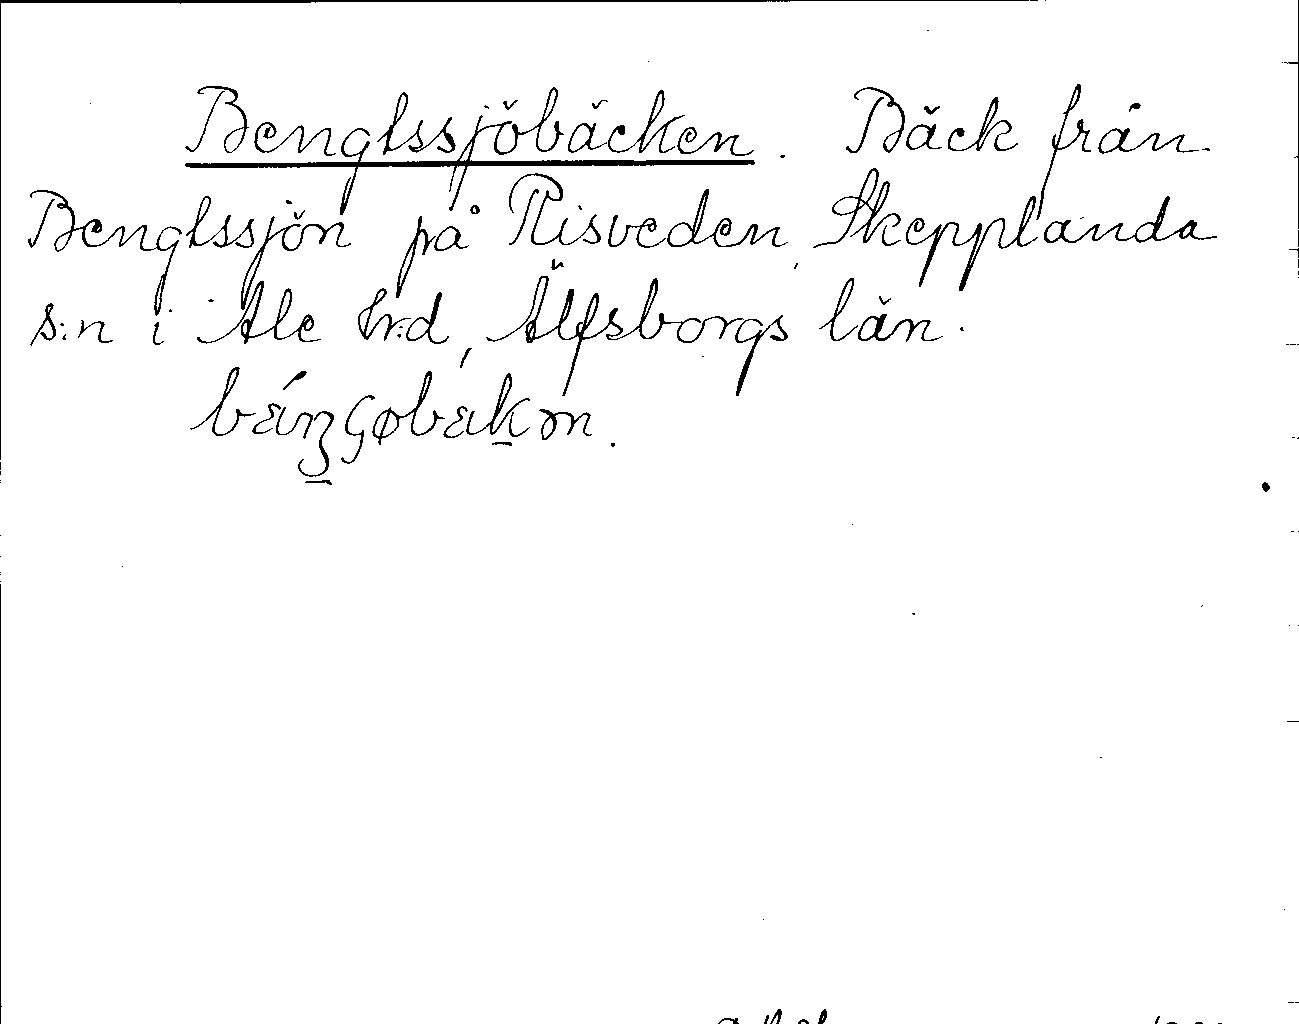 Bengtssjöbäcken. Bäck från
Bengtssjön på Risveden, Skepplanda
s:n i Ale hrd, Älfsborgs län.